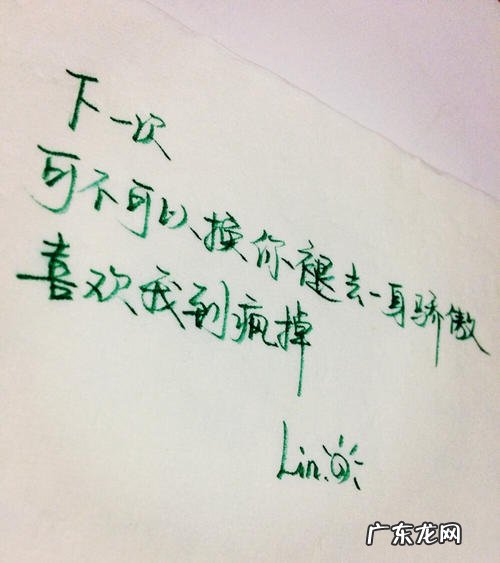 下一次
可不可以换你褪去一身骄傲
喜欢我到疯掉
Lin.
广东龙网